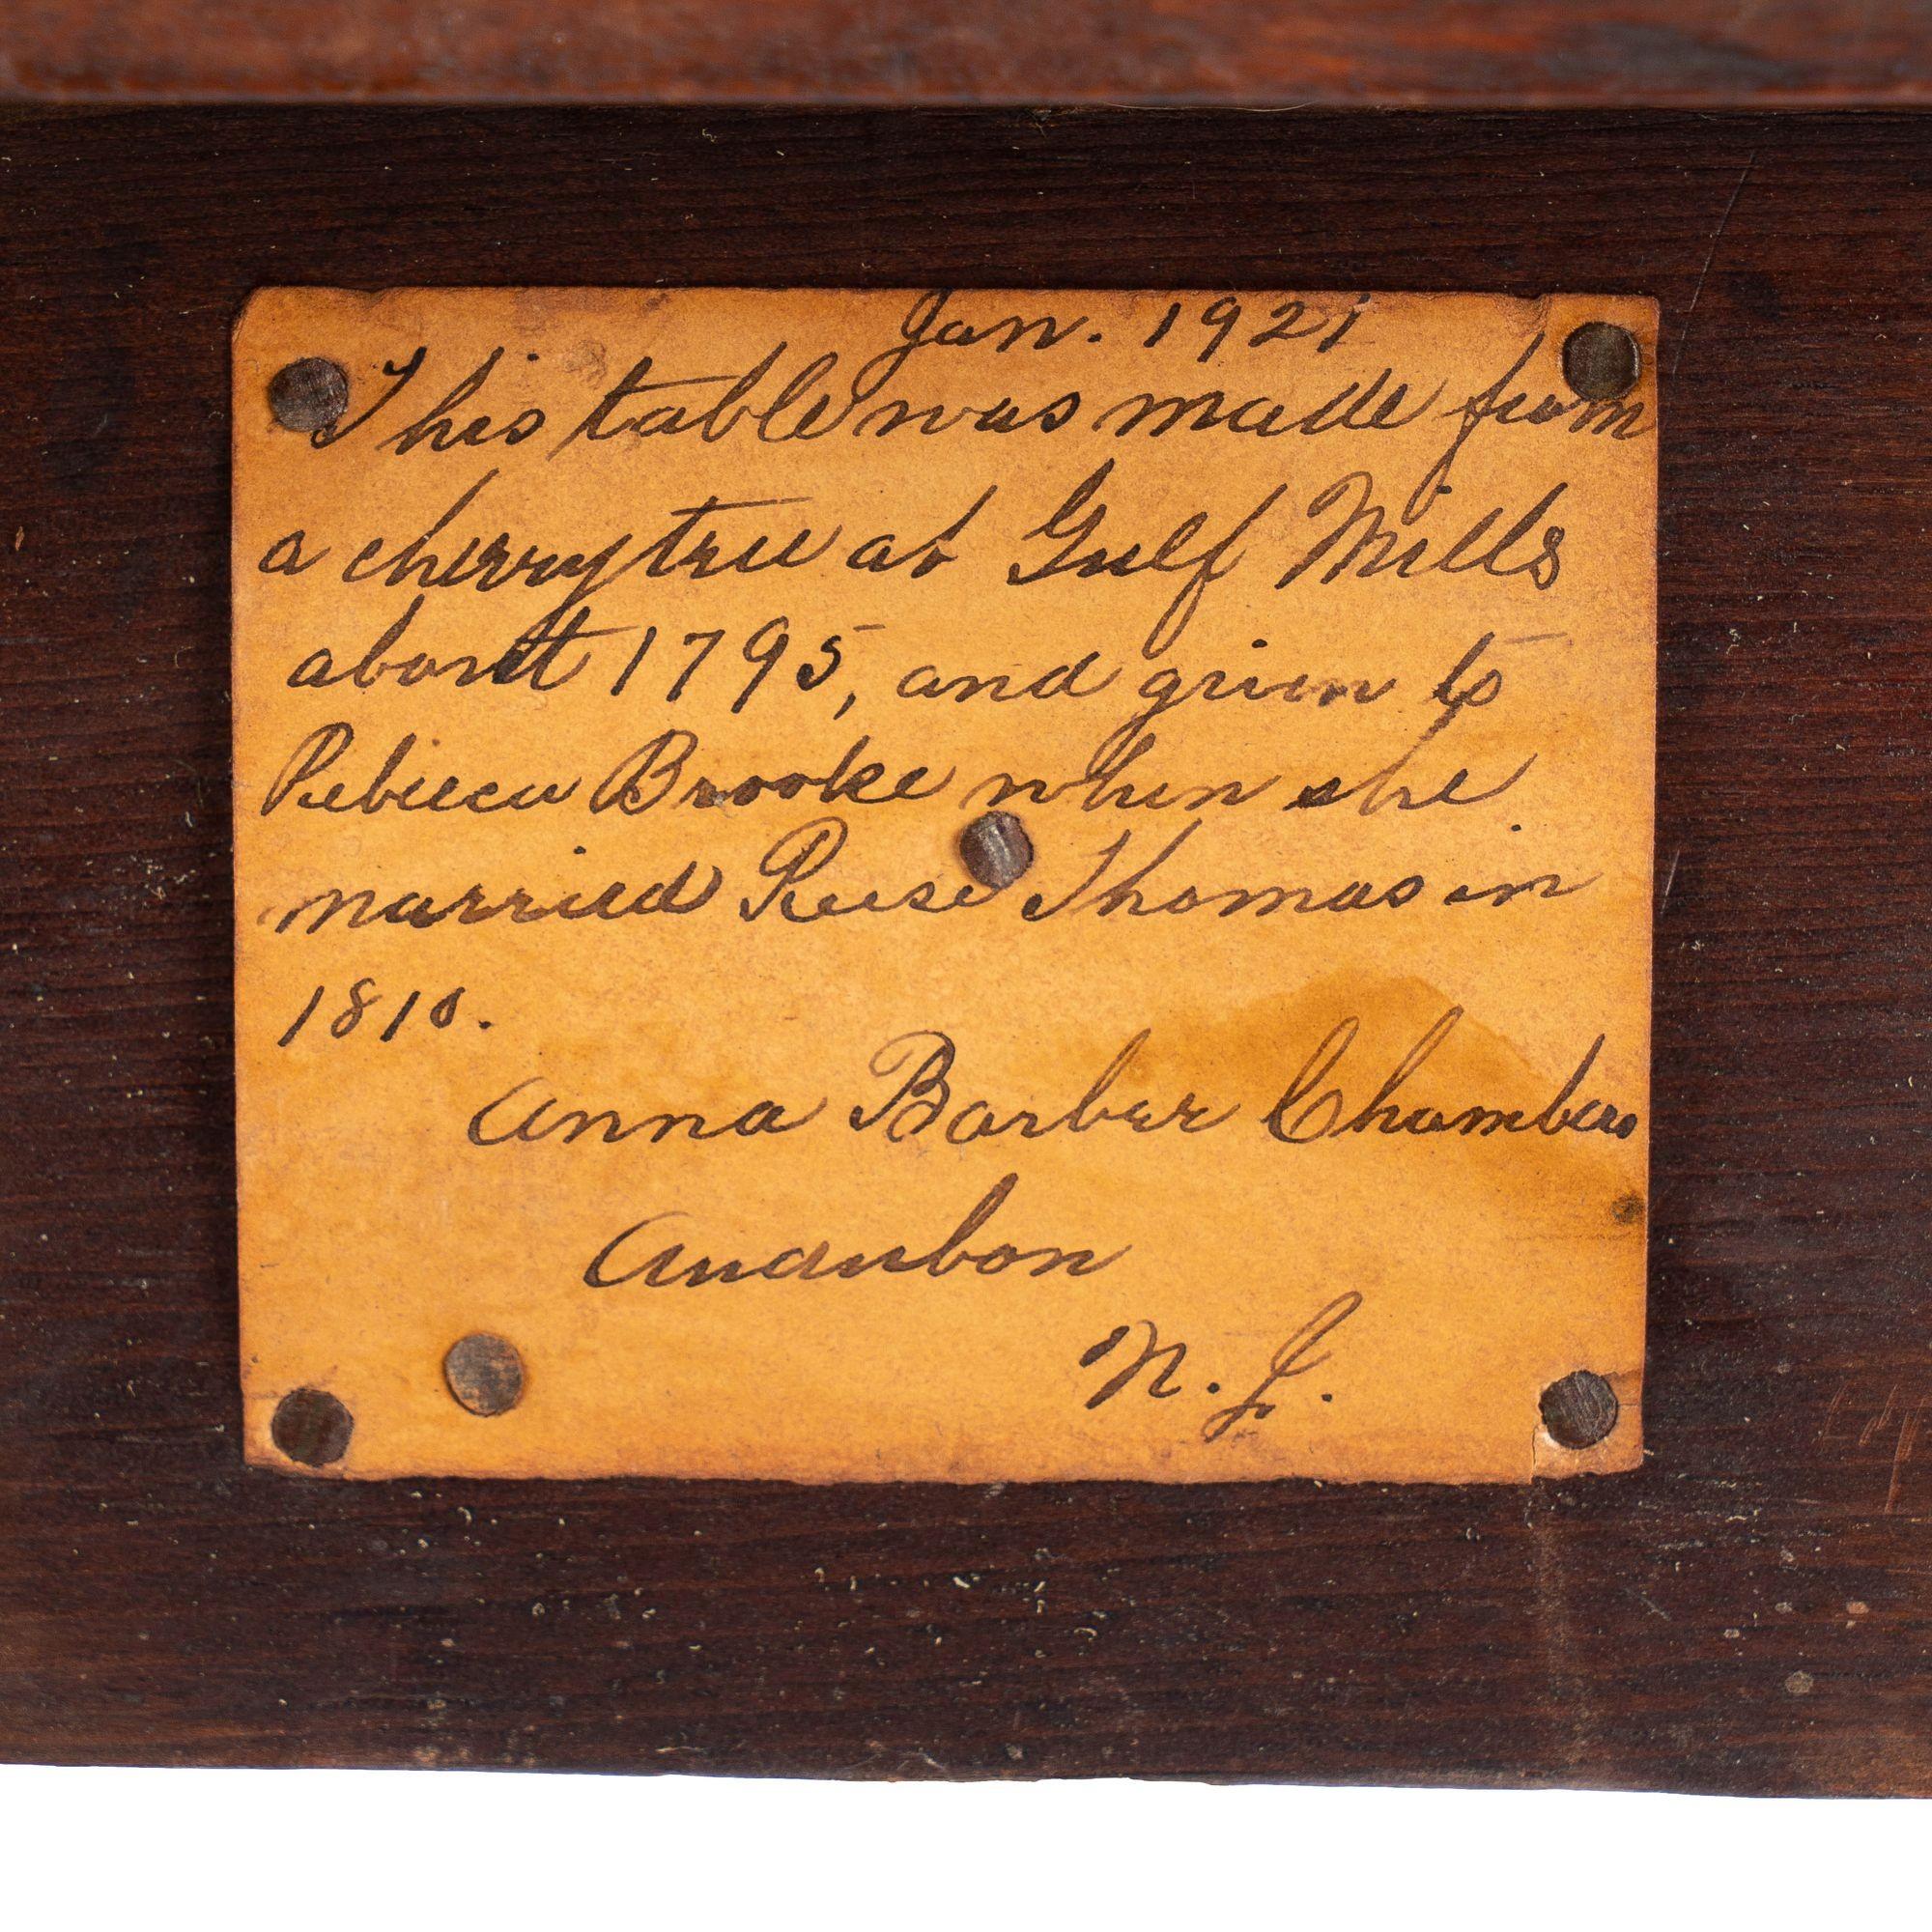 Jan. 1921
This table was made from
a cherry tree at Gulf Mills
about 1795, and given to
Rebecca Brooke when she
married Reese Thomas in
1810.
Anna Barber Chambers
Audubon
N. J.